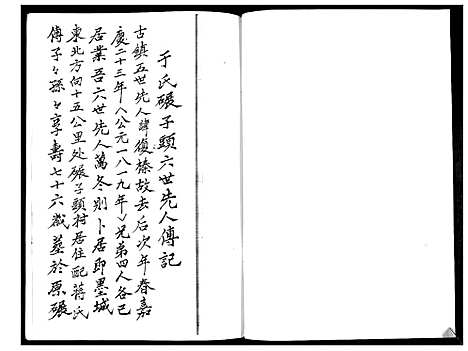 于氏碾子頭六世先人傳記
古鎮五世先人諱復榛故去后次年春嘉
慶二十三年(公元一八一九年)兄弟四人各已
居業吾六世先人萬冬則卜居即墨城
東北方向十五公里处碾子頭村居住配蔣氏
傳子々孫々享壽七十六歲墓於原碾